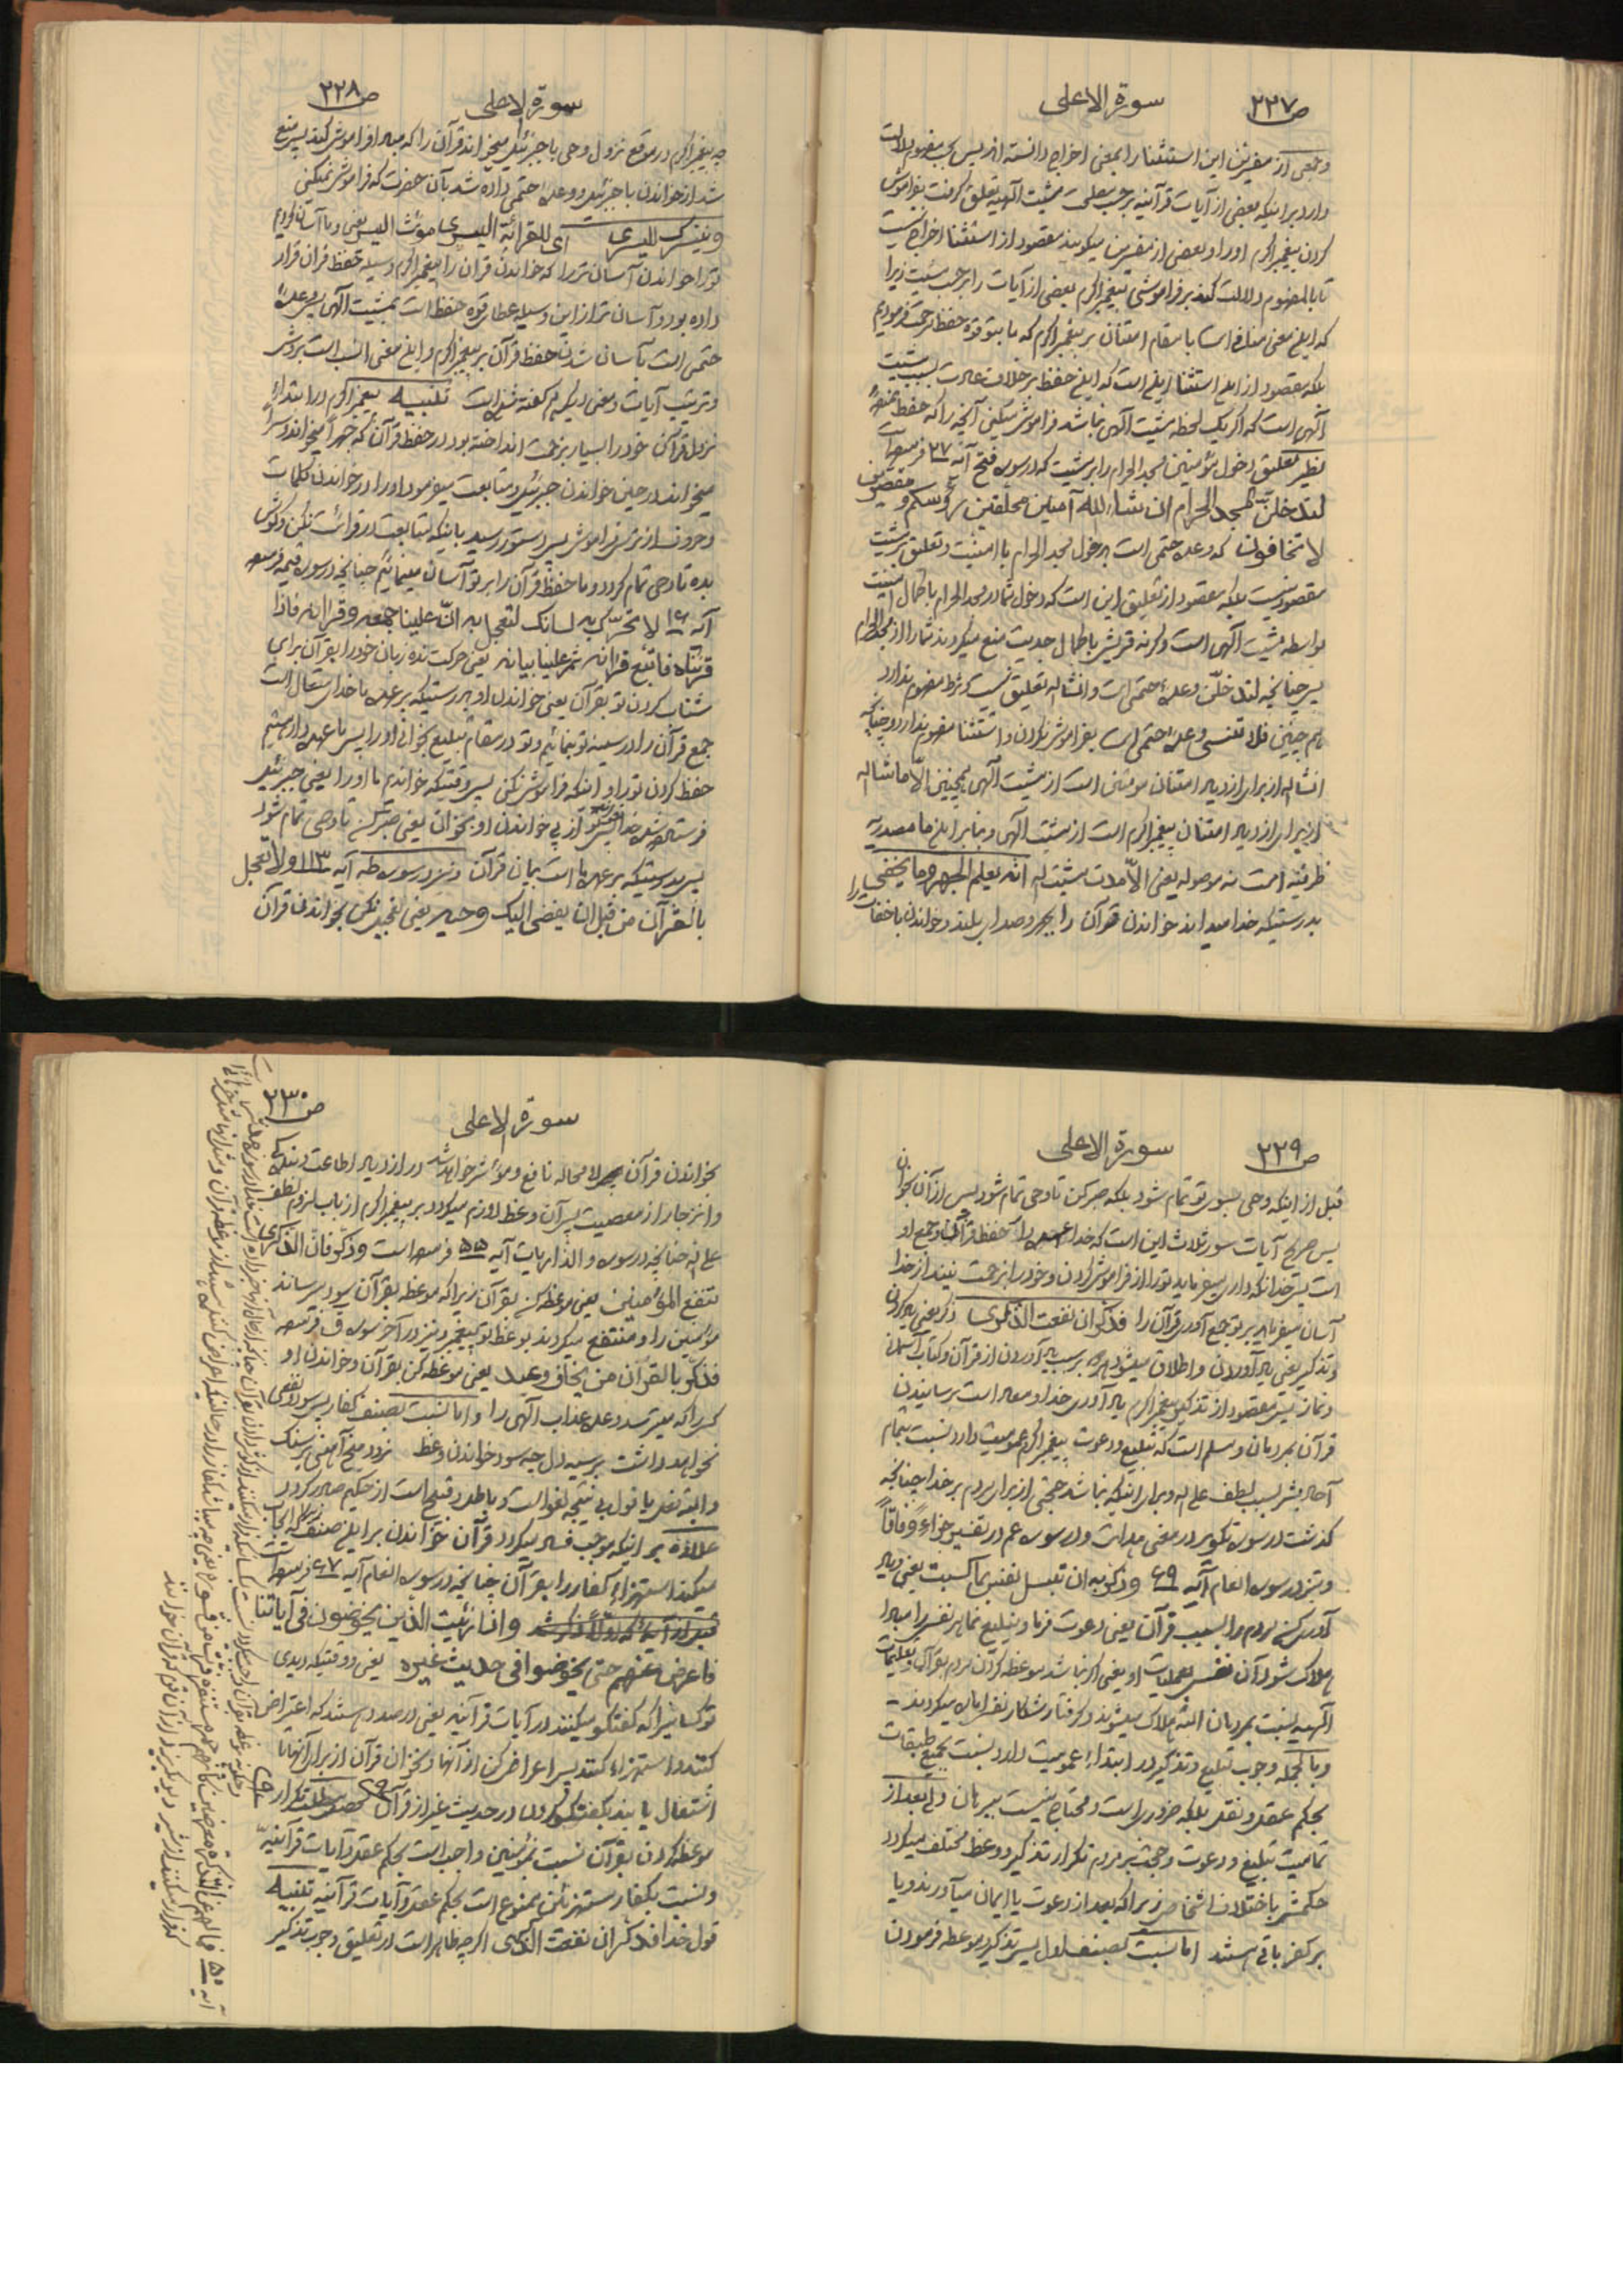 ص ۲۲۷
سورة الاعلى
وبعضی از مفسرین این استثنا را بمعنی اخراج دانسته اند پس بحسب مفهوم دلالت
دارد بر اینکه بعضی از آیات قرآنیه بر حسب مشیت الهیه تعلق گرفت بفراموش
کردن پیغمبر اکرم او را و بعضی از مفسرین میگویند مقصود از استثنا اخراج نیست
تا بالمفهوم دلالت کند بر فراموشی پیغمبر اکرم بعضی از آیات را بر حسب مشیت زیرا
که این معنی منافی است با مقام امتنان بر پیغمبر اکرم که ما بتو قوه حفظ مرحمت فرمودیم
بلکه مقصود از این استثنا اینست که این حفظ بر خلاف عادت بسبب مشیت
الهی است که اگر یک لحظه مشیت الهی نباشد فراموش میکنی آنچه را که حفظ
نظیر تعلیق دخول مؤمنین مسجد الحرام را بر مشیت که در سوره فتح آیه ۲۷ فرموده است
لتدخلن المسجد الحرام ان شاء الله آمنین محلقین رؤسکم و مقصرین
لا تخافون که وعده حتمی است بدخول مسجد الحرام با امنیت و تعلیق بر مشیت
مقصود نیست بلکه مقصود از تعلیق این است که دخول شما در مسجد الحرام با کمال امنیت
بواسطه مشیت الهی است وگرنه قریش با کمال جدیت منع میکردند شما را از مسجد الحرام
پس چنانچه لتدخلن وعده حتمی است و انشاء الله تعلیق نیست و شرط مفهوم ندارد
هم چنین فلا تنسی وعده حتمی است بفراموش نکردن و استثنا مفهوم ندارد و چنانکه
انشاء الله از برای ازدیاد امتنان مومنین است از مشیت الهی همچنین الا ما شاء الله
از برای ازدیاد امتنان پیغمبر اکرم است از مشیت الهی و بنابراین ما مصدریه
ظرفیه است نه موصوله یعنی الا مدت مشیت الله انه یعلم الجهر و ما یخفی
بدرستیکه خدا میداند خواندن قرآن را بجهر و صدای بلند و خواندن باخفات را
ص ۲۲۸
سورة الاعلى
چه پیغمبر اکرم در موقع نزول وحی با جبرئیل میخواند قرآن را که مبادا فراموش کند پس منع
شد از خواندن با جبرئیل و وعده حتمی داده شد بآن حضرت که فراموش نمیکنی
ونیسرک للیسری ای للقرائة الیسری مؤنث الیسر یعنی و ما آسان کردیم
تو را خواندن آسان تر را که خواندن قرآن را پیغمبر اکرم وسیله حفظ قرآن قرار
داده بود و آسان تر از این وسیله عطای قوه حفظ است بمشیت الهی پس وعده
حتمی است بآسان شدن حفظ قرآن بر پیغمبر اکرم و این معنی انسب است بروش
وترتیب آیات و معنی دیگر هم گفته شده است تنبیه پیغمبر اکرم در ابتداء
نزول قرآن خود را بسیار بزحمت انداخته بود در حفظ قرآن که جهراً میخواند و سراً
میخواند در حین خواندن جبرئیل و متابعت میفرمود او را در خواندن کلمات
وحروف از ترس فراموش پس دستور رسید باینکه متابعت در قرائت نکن و گوش
بده تا وحی تمام گردد و ما حفظ قرآن را بر تو آسان مینمائیم چنانچه در سوره قیمه فرموده
آیه ۱۶ لا تحرک به لسانک لتعجل به ان علینا جمعه و قرانه فاذا
قرئناه فاتبع قرانه ثم ان علینا بیانه یعنی حرکت نده زبان خود را بقرآن برای
شتاب کردن تو بقرآن یعنی خواندن او بدرستیکه بر عهده ما خدای متعال است
جمع قرآن را در سینه تو بنمائیم و تو در مقام تبلیغ بخوانی او را پس ما عهده دار هستیم
حفظ کردن تو را و اینکه فراموش نکنی پس وقتیکه خواندیم ما او را یعنی جبرئیل
فرستاده شده خدا پس از پی خواندن او بخوان یعنی صبر کن تا وحی تمام شود
پس بدرستیکه بر عهده ما است بیان قرآن و نیز در سوره طه آیه ۱۱۳ ولا تعجل
بالقرآن من قبل ان یقضی الیک وحیه یعنی تعجیل نکن بخواندن قرآن
ص ۲۲۹
سورة الاعلى
قبل از اینکه وحی بسوی تو تمام شود بلکه صبر کن تا وحی تمام شود پس از آن بخوان
پس صریح آیات سور ثلاث این است که خدا عهده دار حفظ قرآن و جمع او
است پس خدا نگه داری میفرماید تو را از فراموش کردن و خود را بزحمت نینداز خدا
آسان میفرماید بر تو جمع آوری قرآن را فذکر ان نفعت الذکری ذکر یعنی یاد کردن
وتذکیر یعنی یاد آوردن و اطلاق میشود بر سبب یاد آوردن از قرآن و کتاب آسمانی
ونماز پس مقصود از تذکیر پیغمبر اکرم یاد آوری خدا و معاد است برسانیدن
قرآن بمردمان و مسلم است که تبلیغ و دعوت پیغمبر اکرم عمومیت دارد نسبت بتمام
آحاد بشر بسبب لطف علی الله و برای اینکه نباشد حجتی از برای مردم بر خدا چنانچه
گذشت در سوره تکویر در معنی هدایت و در سوره عم در تفسیر جزاءً وفاقاً
ونیز در سوره انعام آیه ۶۹ وذکر به ان تبسل نفس بما کسبت یعنی یاد
آوری کن مردم را بسبب قرآن یعنی دعوت فرما و تبلیغ نما هر نفس را مبادا
هلاک شود آن نفس بعملیات او یعنی اگر نباشد موعظه کردن مردم بقرآن و تعلیمات
الهیه نسبت بمردمان البته هلاک میشوند و گرفتار و شکار نفس اماره میگردند
وبالجمله وجوب تبلیغ و تذکیر در ابتداء عمومیت دارد نسبت بجمیع طبقات
بحکم عقل و نقل بلکه ضروری است و محتاج نیست ببرهان ولی بعد از
تمامیت تبلیغ و دعوت و حجت بر مردم تکرار تذکیر و وعظ مختلف میگردد
حکمش باختلاف اشخاص زیرا که بعد از دعوت یا ایمان میآورند و یا
بر کفر باقی هستند اما نسبت بصنف اول پس تذکیر و موعظه فرمودن
ص ۲۳۰
سورة الاعلى
بخواندن قرآن لا محاله نافع و مؤثر خواهد شد در ازدیاد اطاعت و بندگی
وانزجار از معصیت پس آن وعظ لازم میگردد بر پیغمبر اکرم از باب لزوم لطف
علی الله چنانچه در سوره والذاریات آیه ۵۵ فرموده است وذکر فان الذکری
تنفع المؤمنین یعنی موعظه کن بقرآن زیرا که موعظه بقرآن سود میرساند
مؤمنین را و منتفع میگردند بوعظ تو پیغمبر و نیز در آخر سوره ق فرموده
فذکر بالقرآن من یخاف وعید یعنی موعظه کن بقرآن و خواندن او
کسی را که میترسد وعده عذاب الهی را و اما نسبت بصنف کفار پس سود
نخواهد داشت بر سیه دل چه سود خواندن وعظ نرود میخ آهنین بر سنگ
والبته فعل یا قول بی نتیجه لغو است و باطل و قبیح است از حکیم صادر گردد
علاوه بر اینکه موجب فساد میگردد قرآن خواندن بر این صنف
میکند استهزاء کفار را بقرآن چنانچه در سوره انعام آیه ۶۷ فرموده است
واذا رئیت الذین یخوضون فی آیاتنا
فاعرض عنهم حتی یخوضوا فی حدیث غیره یعنی و وقتیکه دیدی
تو کسانیرا که گفتگو میکنند در آیات قرآنیه یعنی در صدد هستند که اعتراض
کنند و استهزاء کنند پس اعراض کن از آنها و نخوان قرآن از برای آنها تا
اشتغال یابند بگفتگو کردن در حدیث غیر از قرآن
موعظه کردن بقرآن نسبت بمؤمنین واجب است بحکم عقل و آیات قرآنیه
ونسبت بکفار مستهزئین ممنوع است بحکم عقل و آیات قرآنیه تنبیه
قول خدا فذکر ان نفعت الذکری اگر چه ظاهر است در تعلیق وجوب تذکیر
آیه ۵۰ فما لهم عن التذکرة معرضین کانهم حمر مستنفرة فرت من قسورة